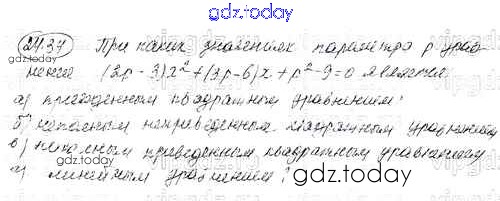 gdz.today
24.37 При каких значениях параметра p урав-
нение (2p-3)x²+(3p-6)x+p²-9=0 является:
gdz.today
а) приведенным квадратным уравнением;
б) неполным неприведенным квадратным уравнением
в) неполным приведенным квадратным уравнением
г) линейным уравнением;
gdz.today
gdz.today